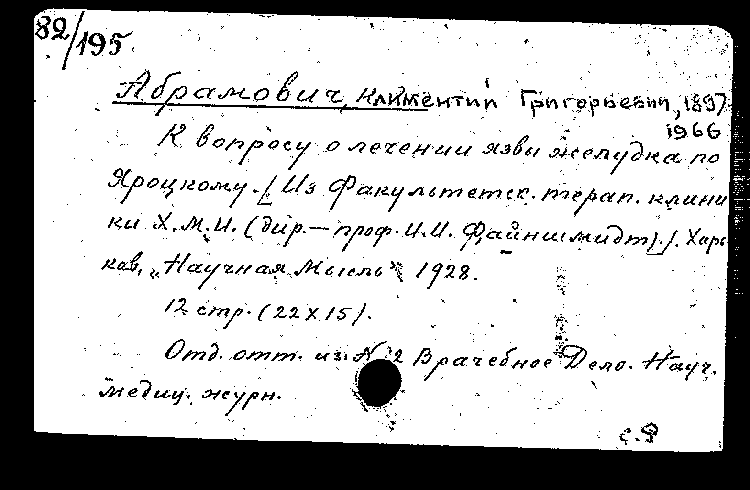 82/195
Абрамович, Климентий Григорьевич, 1897
1966
К вопросу о лечении язвы желудка по
Яроцкому. [Из Факультетск. терап. клини
ки Х.М.И. (дир. — проф. И.И. Файншмидт).]. Харь
ков, „Научная Мысль“ 1928.
12 стр. (22х15).
Отд. отт. из № 2 Врачебное Дело. Науч.
медиц. журн.
с. Р